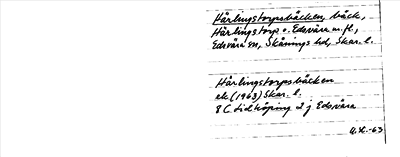 Härlingstorpsbäcken, bäck,
Härlingstorp o. Edsvära m.fl.,
Edsvära sn, Skånings hd, Skar. l.
Härlingstorpsbäcken
ek (1963) Skar. l.
8 C Lidköping 2 j Edsvära
-63